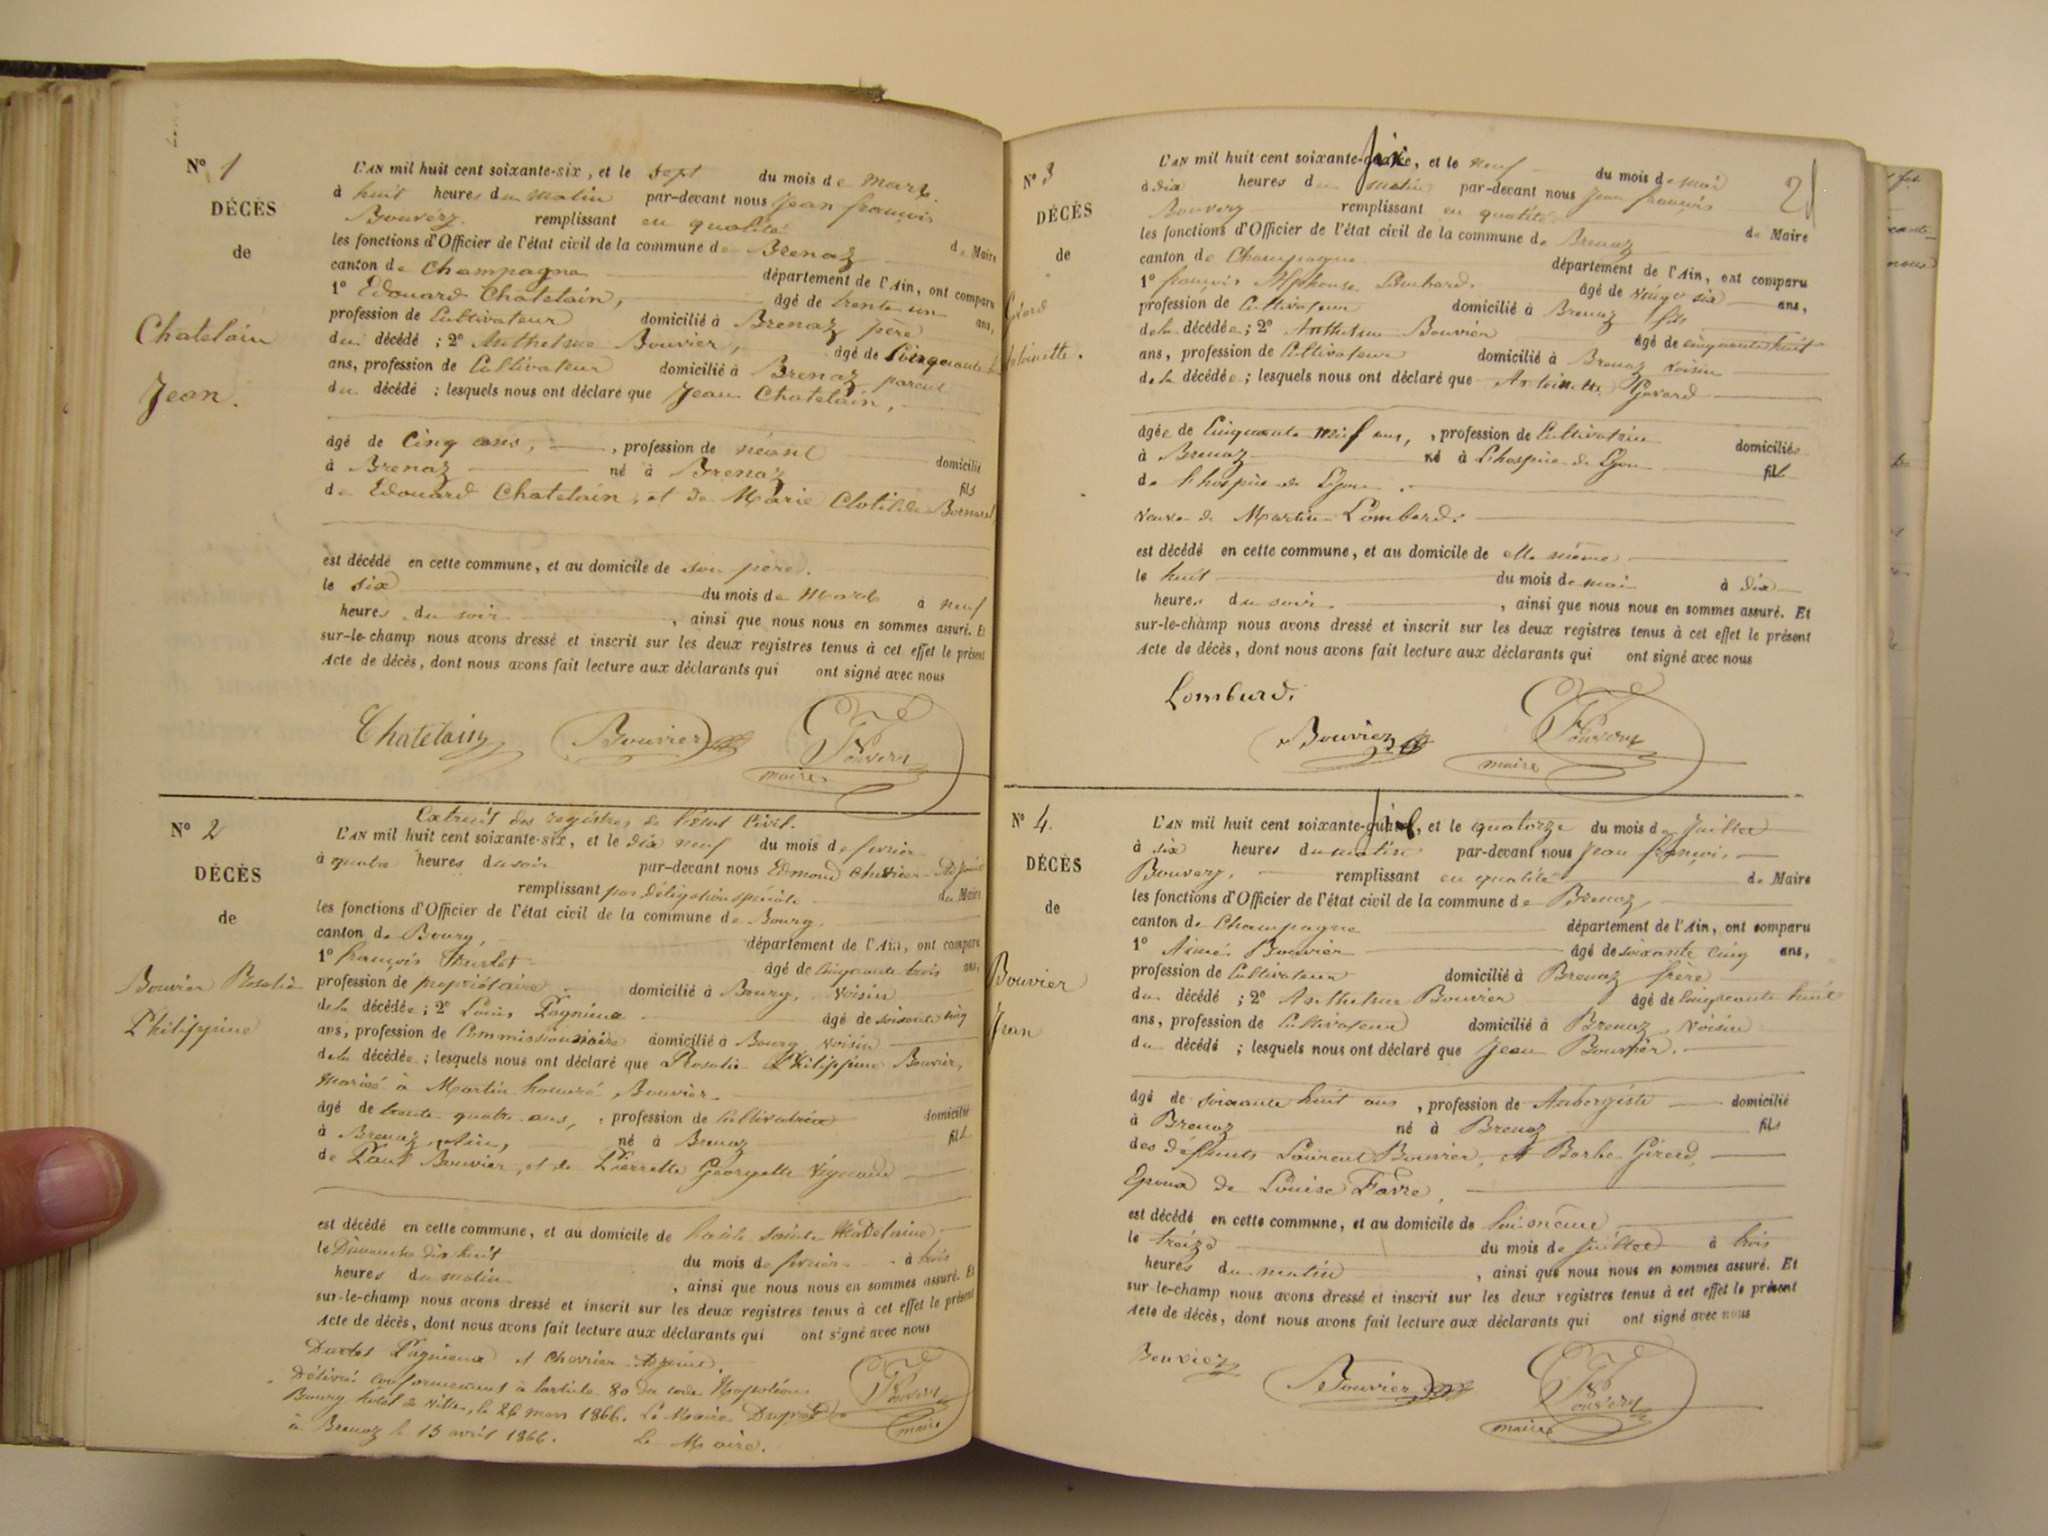 N° 1
DÉCÈS
de
Chatelain
Jean.
L'AN mil huit cent soixante-six, et le sept du mois de mars.
à huit heures du matin par-devant nous Jean françois
Bouvery. remplissant en qualité de Maire
les fonctions d'Officier de l'état civil de la commune de Brenaz
canton de Champagne département de l'Ain, ont comparu
1° Edouard Chatelain, âgé de trente un ans,
profession de Cultivateur domicilié à Brenaz père
du décédé ; 2° Anthelme Bouvier, âgé de Cinquante
ans, profession de Cultivateur domicilié à Brenaz parent
du décédé ; lesquels nous ont déclaré que Jean Chatelain,
âgé de Cinq ans, , profession de néant domicilié
à Brenaz né à Brenaz fils
de Edouard Chatelain, et de Marie Clotilde
est décédé en cette commune, et au domicile de son père.
le six du mois de Mars à neuf
heures du soir , ainsi que nous nous en sommes assuré. Et
sur-le-champ nous avons dressé et inscrit sur les deux registres tenus à cet effet le présent
Acte de décès, dont nous avons fait lecture aux déclarants qui ont signé avec nous
Chatelain Bouvier Bouvery
maire
N° 2
DÉCÈS
de
Bouvier Rosalie
Philippine
Extrait des registres de l'état Civil.
L'AN mil huit cent soixante-six, et le dix neuf du mois de fevrier
à quatre heures du soir par-devant nous Edmond Chevrier Adjoint
remplissant par Délégation spéciale du Maire
les fonctions d'Officier de l'état civil de la commune de Bourg,
canton de Bourg, département de l'Ain, ont comparu
1° françois âgé de Cinquante trois ans,
profession de propriétaire domicilié à Bourg, voisin
de la décédée ; 2° Louis Pagnieux âgé de soixante cinq
ans, profession de Commissionnaire domicilié à Bourg voisin
de la décédée ; lesquels nous ont déclaré que Rosalie Philippine Bouvier,
Mariée à Martin honoré Bouvier.
âgé de trente quatre ans, , profession de Cultivatrice domicilié
à Brenaz, Ain, né à Brenaz fil
de Paul Bouvier, et de Pierrette Georgette
est décédé en cette commune, et au domicile de sainte Madelaine
le Dimanche dix huit du mois de fevrier à trois
heures du matin , ainsi que nous nous en sommes assuré. Et
sur-le-champ nous avons dressé et inscrit sur les deux registres tenus à cet effet le présent
Acte de décès, dont nous avons fait lecture aux déclarants qui ont signé avec nous
Pagnieux et Chevrier Adjoint.
Délivré conformément à l'article 80 du code Napoléon
Bourg hôtel de Ville, le 26 mars 1866. Le Maire
à Brenaz le 15 avril 1866. Le Maire.
Bouvery
maire
N° 3
DÉCÈS
de
21
L'AN mil huit cent soixante-six, et le neuf du mois de mai
à dix heures du matin par-devant nous Jean françois
Bouvery remplissant en qualité de Maire
les fonctions d'Officier de l'état civil de la commune de Brenaz
canton de Champagne département de l'Ain, ont comparu
1° françois Alphonse Lombard. âgé de vingt six ans,
profession de Cultivateur domicilié à Brenaz fils
de la décédée ; 2° Anthelme Bouvier âgé de cinquante huit
ans, profession de Cultivateur domicilié à Brenaz voisin
de la décédée ; lesquels nous ont déclaré que Antoinette
âgée de Cinquante neuf ans, , profession de Cultivatrice domiciliée
à Brenaz né à L'hospice de Lyon fil
de L'hospice de Lyon.
veuve de Martin Lombard.
est décédé en cette commune, et au domicile de elle même
le huit du mois de mai à dix
heures du soir , ainsi que nous nous en sommes assuré. Et
sur-le-champ nous avons dressé et inscrit sur les deux registres tenus à cet effet le présent
Acte de décès, dont nous avons fait lecture aux déclarants qui ont signé avec nous
Lombard.
Bouvier Bouvery
maire
N° 4.
DÉCÈS
de
Bouvier
Jean
L'AN mil huit cent soixante-six, et le quatorze du mois de Juillet
à six heures du matin par-devant nous Jean françois
Bouvery, remplissant en qualité de Maire
les fonctions d'Officier de l'état civil de la commune de Brenaz
canton de Champagne département de l'Ain, ont comparu
1° Aimé Bouvier âgé de soixante cinq ans,
profession de Cultivateur domicilié à Brenaz frère
du décédé ; 2° Anthelme Bouvier âgé de Cinquante huit
ans, profession de Cultivateur domicilié à Brenaz, voisin
du décédé ; lesquels nous ont déclaré que Jean Bouvier.
âgé de soixante huit ans , profession de Aubergiste domicilié
à Brenaz né à Brenaz fils
des défunts Laurent Bouvier, et Barbe
Epoux de Louise Favre,
est décédé en cette commune, et au domicile de lui même
le treize du mois de Juillet à trois
heures du matin , ainsi que nous nous en sommes assuré. Et
sur-le-champ nous avons dressé et inscrit sur les deux registres tenus à cet effet le présent
Acte de décès, dont nous avons fait lecture aux déclarants qui ont signé avec nous
Bouvier Bouvier Bouvery
maire